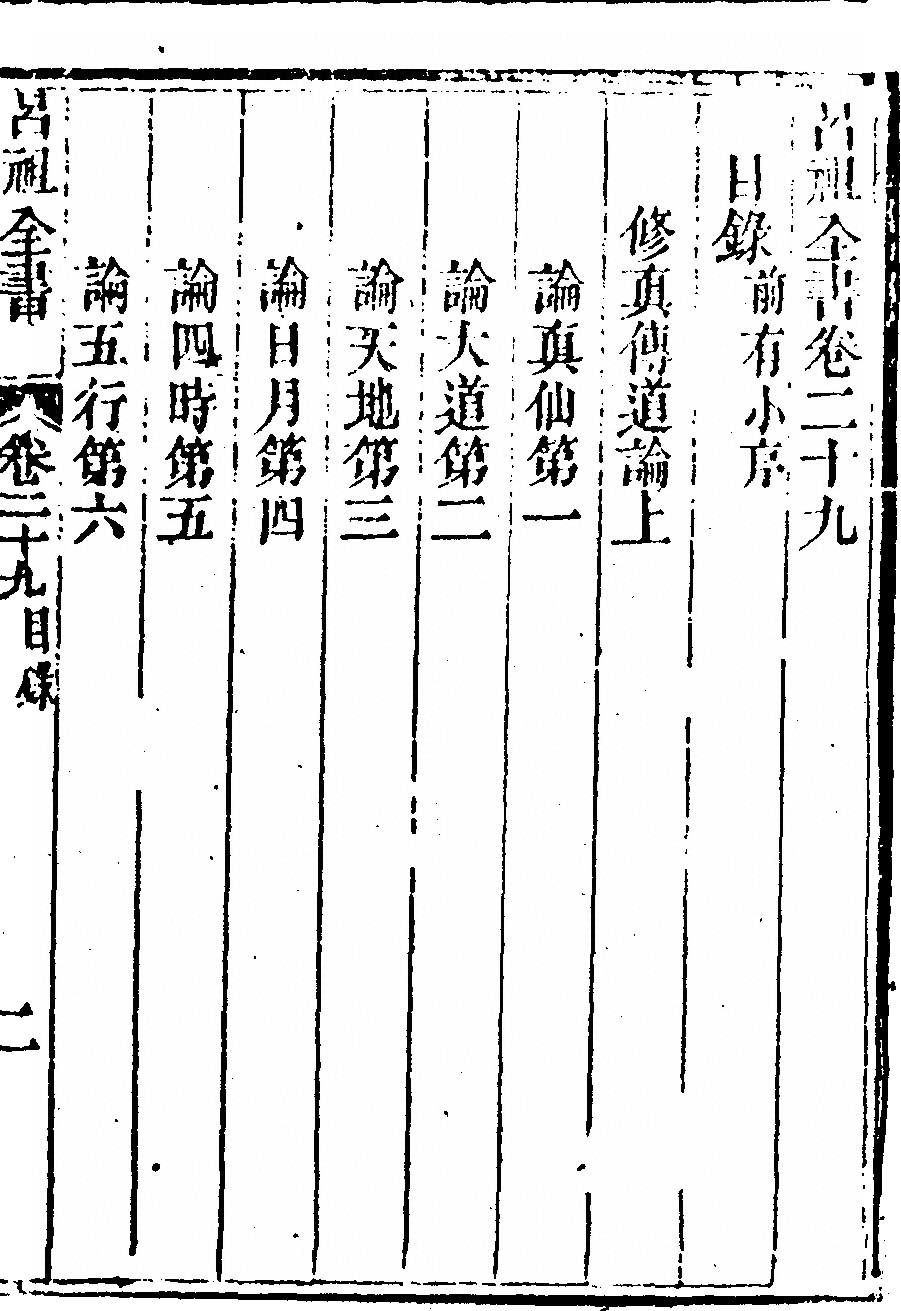 呂祖全書卷二十九
目錄前有小序
修真傳道論上
論真仙第一
論大道第二
論天地第三
論日月第四
論四時第五
論五行第六
呂祖全書 卷二十九目錄 二